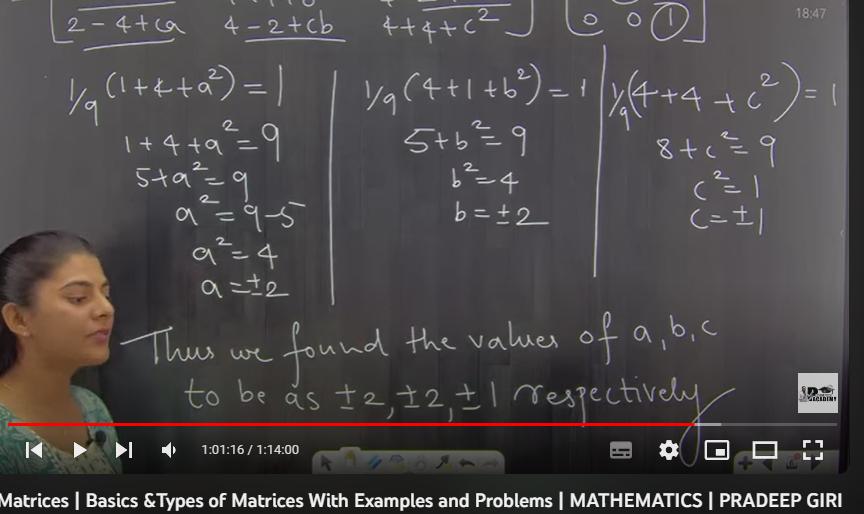 18:47
2-4+ca 4-2+cb 4+4+c² 0 0 1
1/9 (1+4+a²) = 1
1+4+a² = 9
5+a² = 9
a² = 9-5
a² = 4
a = ±2
1/9 (4+1+b²) = 1
5+b² = 9
b² = 4
b = ±2
1/9 (4+4+c²) = 1
8+c² = 9
c² = 1
c = ±1
Thus we found the values of a, b, c
to be as ±2, ±2, ±1 respectively
ACADEMY
1:01:16 / 1:14:00
Matrices | Basics &Types of Matrices With Examples and Problems | MATHEMATICS | PRADEEP GIRI